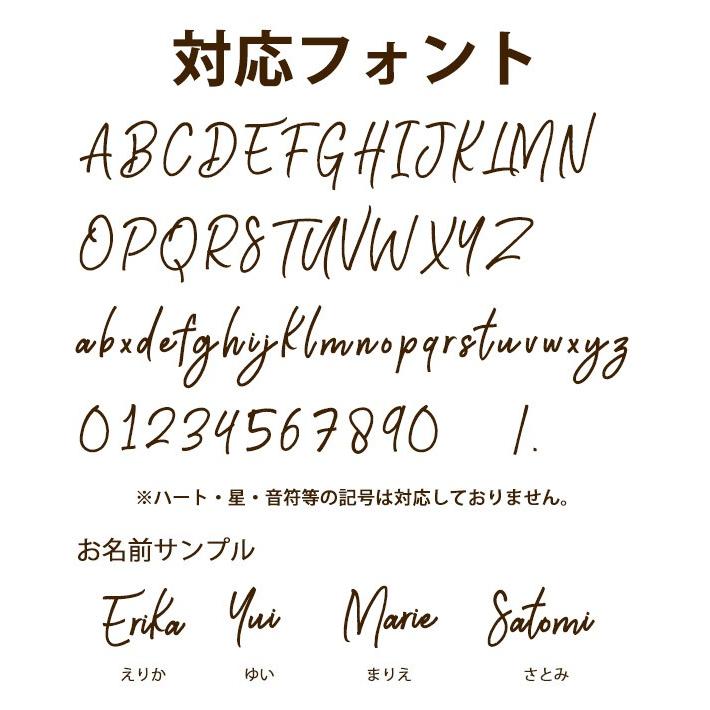 対応フォント
ABCDEFGHIJKLMN
OPQRSTUVWXYZ
abxdefghijklmnopqrstuvwxyz
01234567890 /.
※ハート・星・音符等の記号は対応しておりません。
お名前サンプル
Erika Yui Marie Satomi
えりか ゆい まりえ さとみ